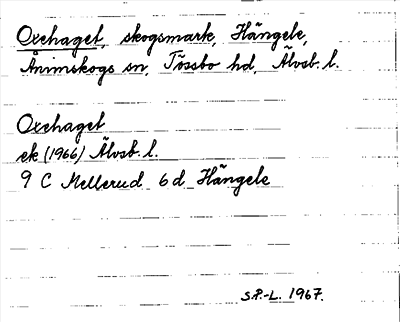 Oxehaget, skogsmark, Hängele,
Ånimskogs sn, Tössbo hd, Älvsb. l.
Oxehaget
ek (1966) Älvsb. l.
9 C Mellerud 6 d Hängele
S.P.-L. 1967.